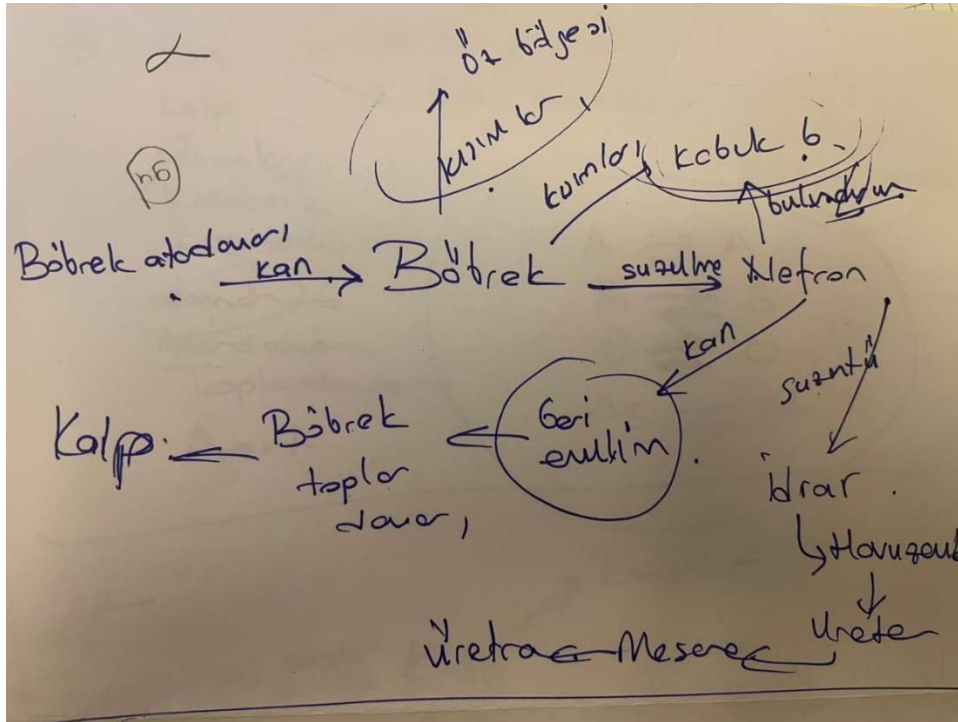 Öz bölgesi
kısımlar
kısımları
kabuk b.
bulundurur
Böbrek atardamarı
kan
Böbrek
süzülme
Nefron
kan
süzüntü
Geri
emilim
Böbrek
toplar
damarı
Kalp
İdrar
Havuzcuk
Üreter
Mesane
Üretra